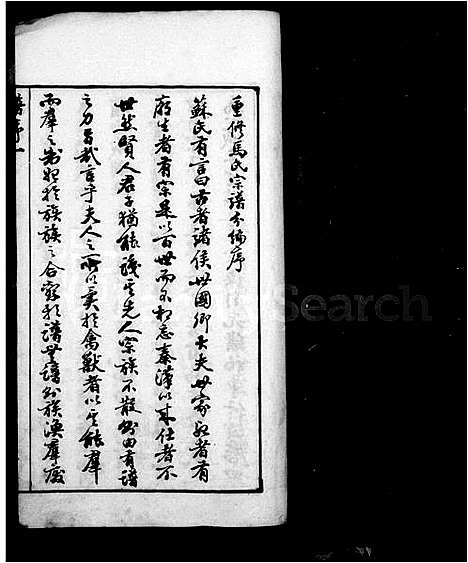 重修馬氏宗譜分編序
蘇氏有言曰古者諸侯世國卿大夫世家死者有
廟生者有宗是以百世而不相忘秦漢以來仕者不
世然賢人君子猶能識其先人宗族不散則由有譜
之力旨哉言乎夫人之所以異於禽獸者以其能羣
而羣之制始於族族之合寄於譜無譜則族渙羣廢
譜序一
Search